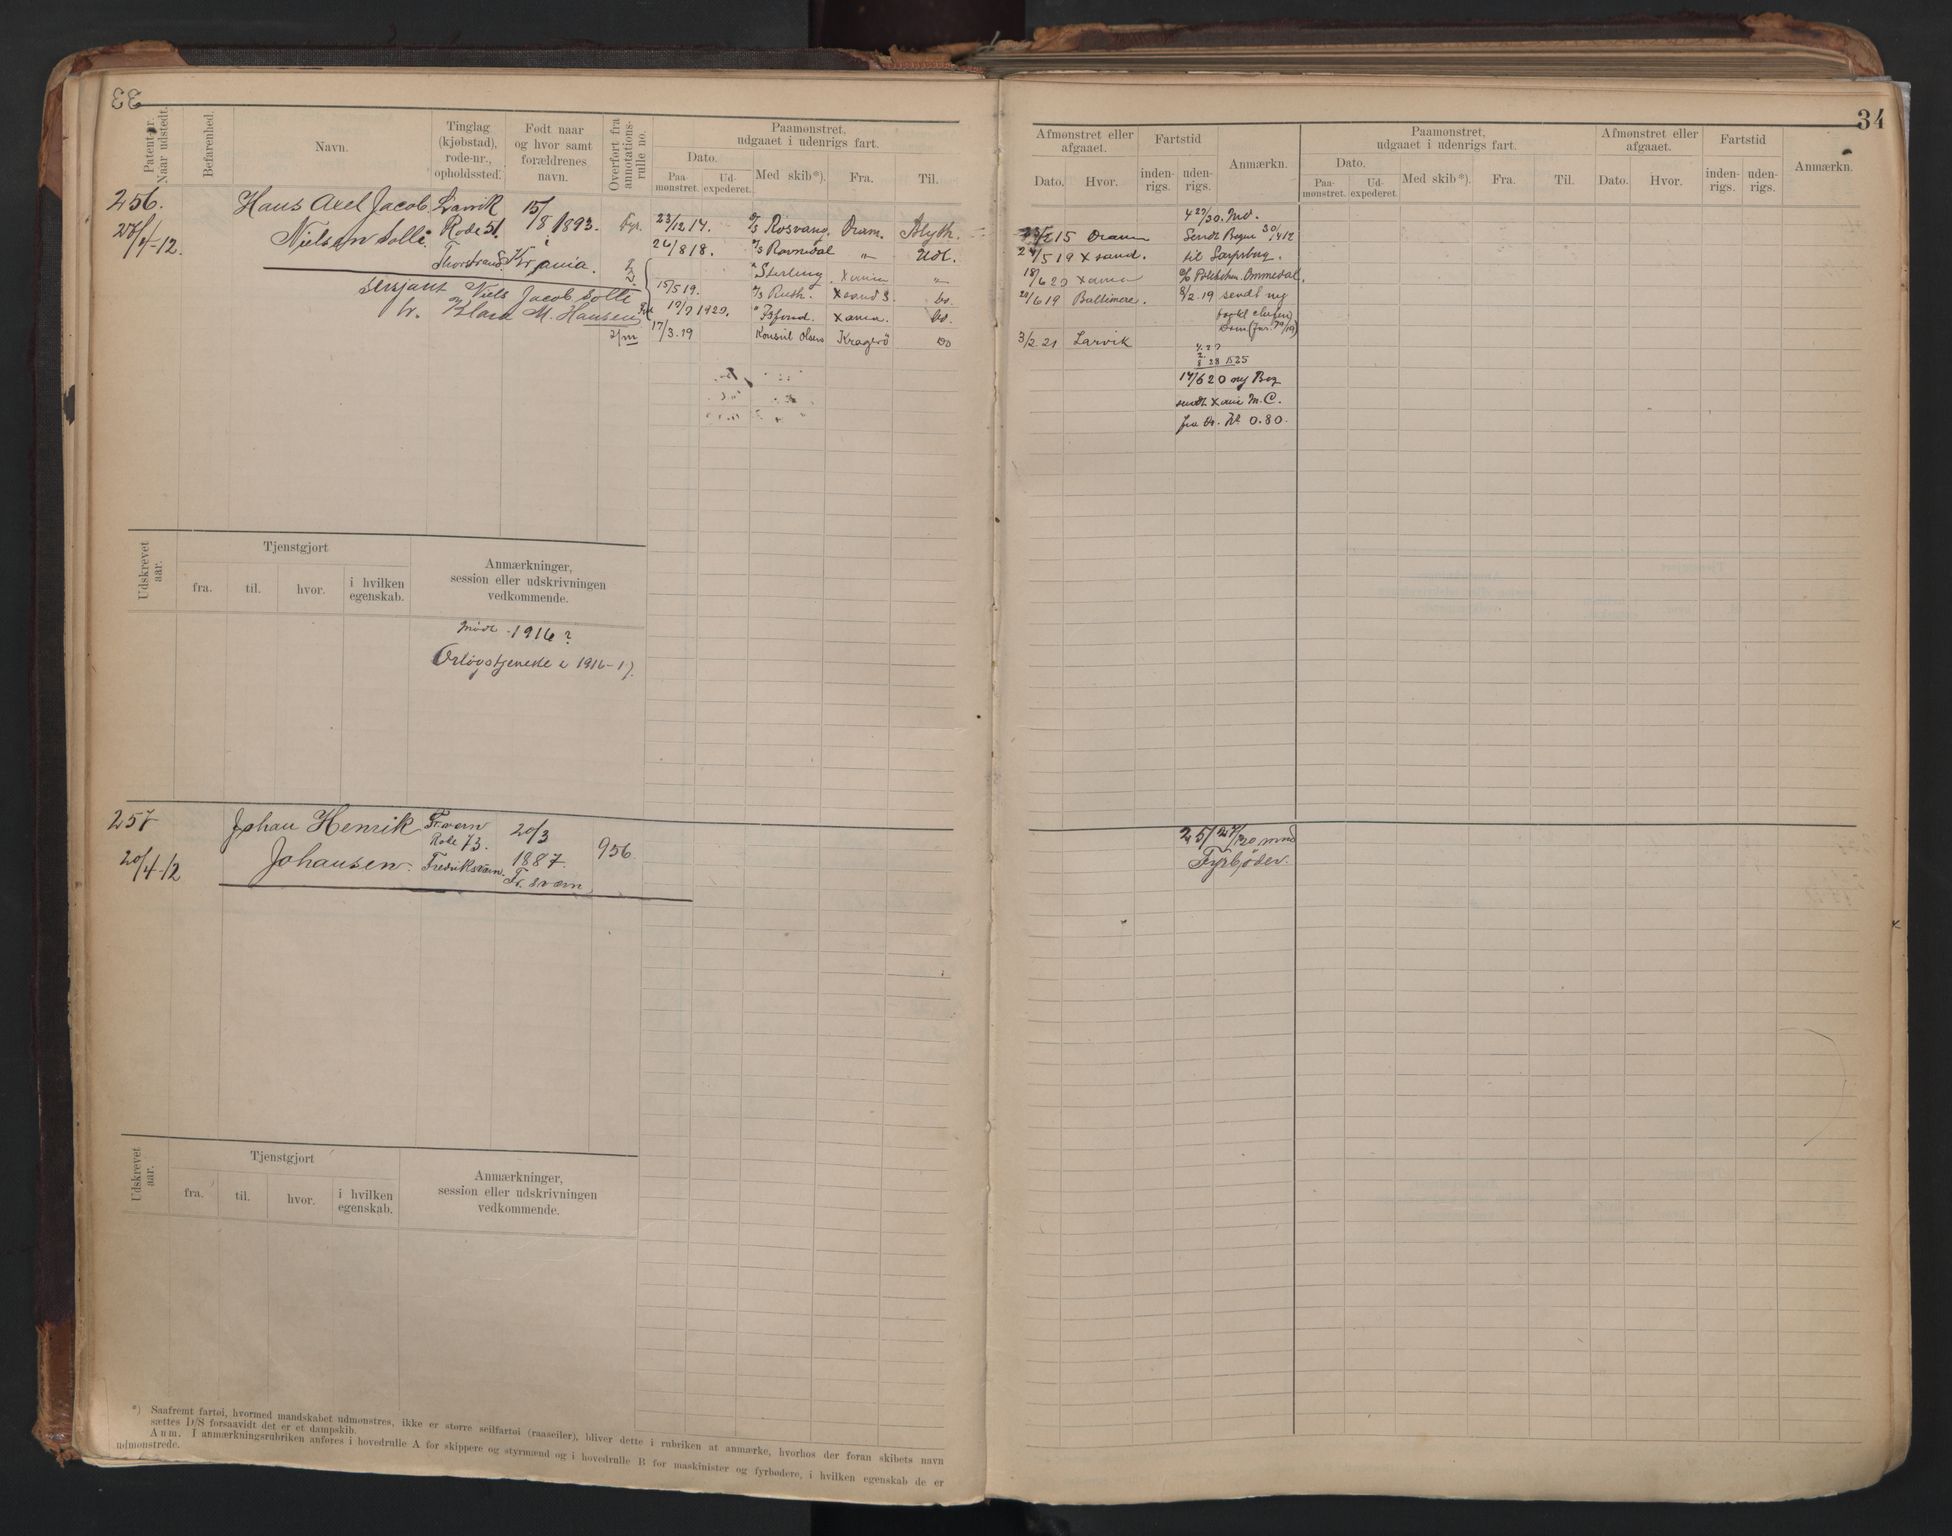 33
Patent-nr. Naar udstedt.
Befarenhed.
Navn.
Tinglag (kjøbstad), rode-nr., opholdssted.
Født naar og hvor samt forældrenes navn.
Overført fra annotations-rulle no.
Paamønstret, udgaaet i udenrigs fart.
Dato.
Paa-mønstret.
Ud-expederet.
Med skib*).
Fra.
Til.
256.
27/4-12.
Hans Axel Jacob
Nielsen Solli.
Larvik
Rode 51.
Thorstrand.
15/8 1893.
Kr.ania.
Fyr.
sersjant Niels Jacob Solli
og Klara M. Hansen
23/12 14. D/S Rosvang. Dram. Blyth.
26/8 18. D/S Ravnedal " Udl.
" Sterling Xania "
15/5 19. D/S Ruth. Xsand S. do.
17/7 1920. Xania. do.
17/3.19 Konsul Olsen Kragerø do
Udskrevet aar.
Tjenstgjort
fra.
til.
hvor.
i hvilken egenskab.
Anmærkninger, session eller udskrivningen vedkommende.
Mødt 1916?
Orlogstjeneste i 1916-17.
257
20/4-12
Johan Henrik
Johansen.
Fr.værn
Rode 73.
Fredriksværn.
20/3
1887.
Fr.sværn
956.
Udskrevet aar.
Tjenstgjort
fra.
til.
hvor.
i hvilken egenskab.
Anmærkninger, session eller udskrivningen vedkommende.
*) Saafremt fartøi, hvormed mandskabet udmønstres, ikke er større seilfartøi (raaseiler), bliver dette i rubriken at anmærke, hvorhos der foran skibets navn
sættes D/S forsaavidt det er et dampskib.
Anm. I anmærkningsrubriken anføres i hovedrulle A for skippere og styrmænd og i hovedrulle B for maskinister og fyrbødere, i hvilken egenskab de er
udmønstrede.
34
Afmønstret eller afgaaet.
Dato.
Hvor.
Fartstid
inden-rigs.
uden-rigs.
Anmærkn.
Paamønstret, udgaaet i udenrigs fart.
Dato.
Paa-mønstret.
Ud-expederet.
Med skib*).
Fra.
Til.
Afmønstret eller afgaaet.
Dato.
Hvor.
Fartstid
inden-rigs.
uden-rigs.
Anmærkn.
4 27/30. Md.
15 Dram Sendt Bogen 30/4 12
24/5 19 Xsand. til Sarpsborg.
18/6 20 Xania
20/6 19 Baltimore. 8/2.19 sendt ny
3/2 21 Larvik
17/6 20 ny Bog
sendt Xania M.C.
fra do. Kr 0.80.
25/27/30 mnd
Fyrbøder.